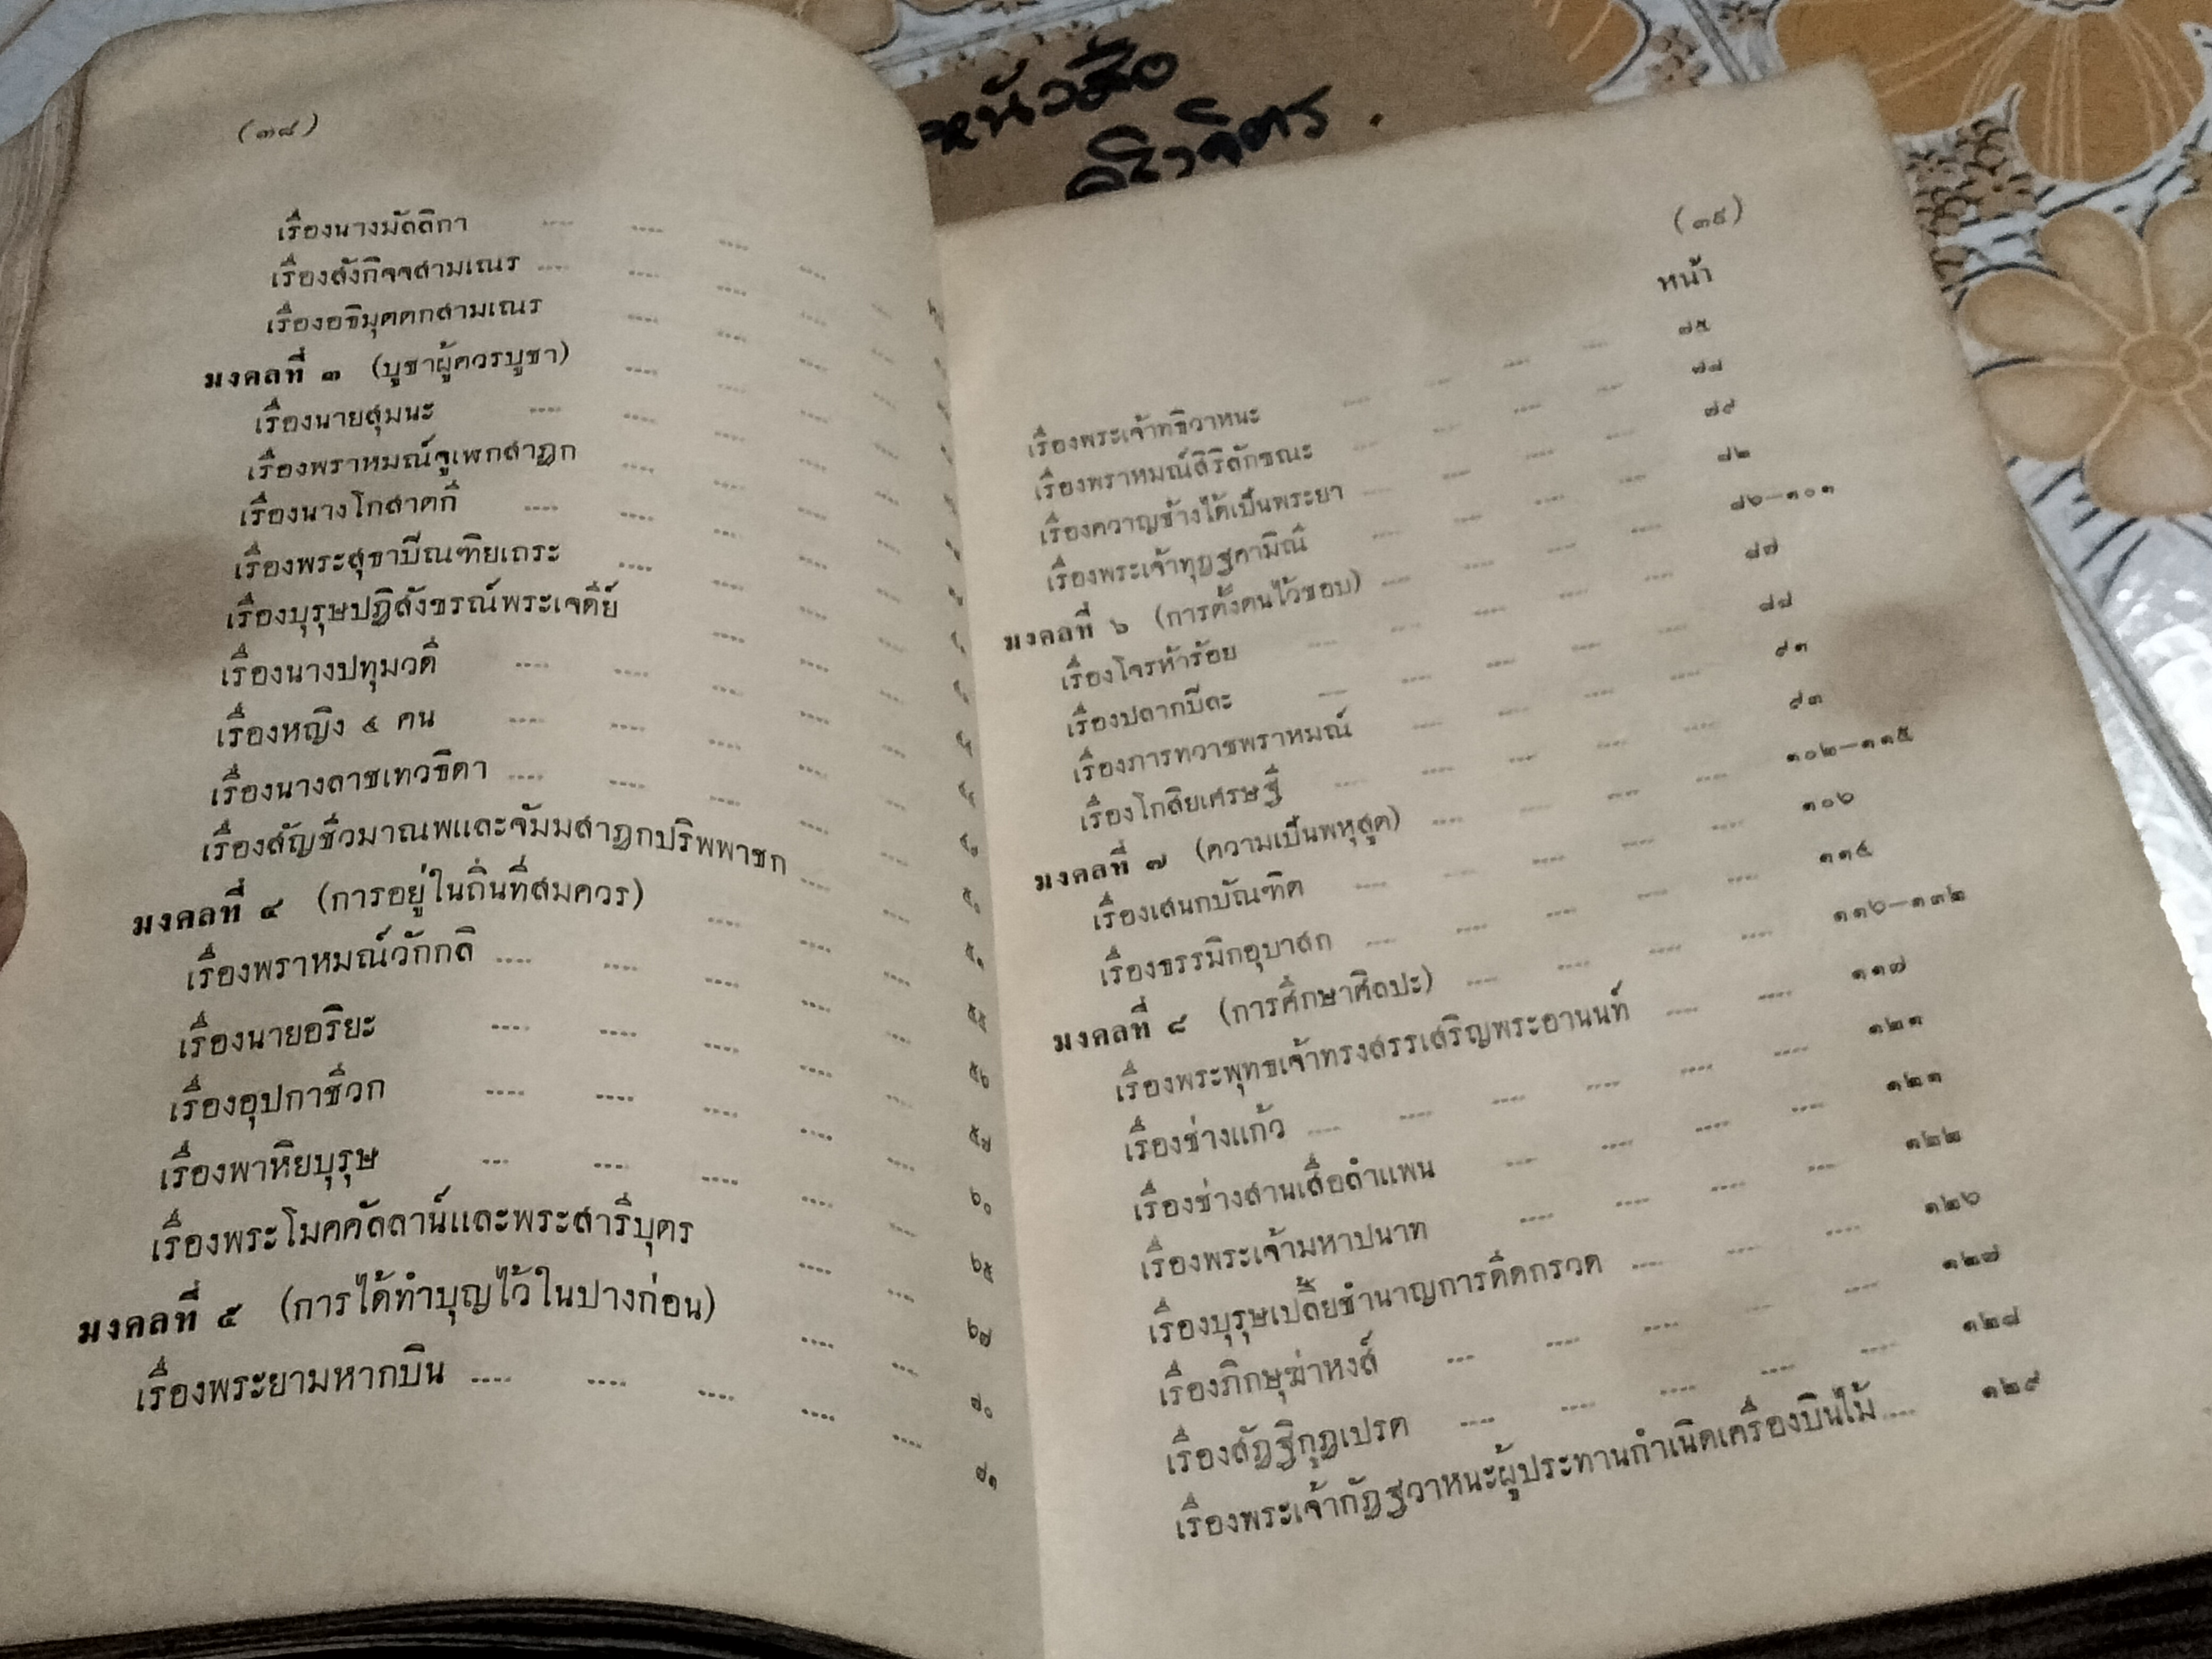 หนังสือ
วิจิตร.
(๓๘)
เรื่องนางมัลลิกา
เรื่องสังกิจจสามเณร
เรื่องอธิมุตตกสามเณร
มงคลที่ ๓ (บูชาผู้ควรบูชา)
เรื่องนายสุมนะ
เรื่องพราหมณ์จูเฬกสาฎก
เรื่องนางโกสาตกี
เรื่องพระสุธาบิณฑิยเถระ
เรื่องบุรุษปฏิสังขรณ์พระเจดีย์
เรื่องนางปทุมวดี
เรื่องหญิง ๔ คน
เรื่องนางลาชเทวธิดา
เรื่องสัญชีวมาณพและจัมมสาฎกปริพพาชก
มงคลที่ ๔ (การอยู่ในถิ่นที่สมควร) ๕๕
เรื่องพราหมณ์วักกลิ ๕๖
เรื่องนายอริยะ ๕๗
เรื่องอุปกาชีวก ๖๐
เรื่องพาหิยบุรุษ ๖๕
เรื่องพระโมคคัลลาน์และพระสารีบุตร ๖๗
มงคลที่ ๕ (การได้ทำบุญไว้ในปางก่อน) ๗๐
เรื่องพระยามหากบิน ๗๑
(๓๙)
หน้า
เรื่องพระเจ้าทธิวาหนะ ๗๕
เรื่องพราหมณ์สิริลักขณะ ๗๘
เรื่องควาญช้างได้เป็นพระยา ๗๙
เรื่องพระเจ้าทุฏฐคามิณี ๘๒
มงคลที่ ๖ (การตั้งตนไว้ชอบ) ๘๖—๑๐๑
เรื่องโจรห้าร้อย ๘๗
เรื่องปลากปิละ ๘๘
เรื่องภารทวาชพราหมณ์ ๙๑
เรื่องโกสิยเศรษฐี ๙๓
มงคลที่ ๗ (ความเป็นพหุสูต) ๑๐๒—๑๑๕
เรื่องเสนกบัณฑิต ๑๐๖
เรื่องธรรมิกอุบาสก ๑๑๔
มงคลที่ ๘ (การศึกษาศิลปะ) ๑๑๖—๑๓๒
เรื่องพระพุทธเจ้าทรงสรรเสริญพระอานนท์ ๑๑๗
เรื่องช่างแก้ว ๑๒๑
เรื่องช่างสานเสื่อลำแพน ๑๒๑
เรื่องพระเจ้ามหาปนาท ๑๒๒
เรื่องบุรุษเปลี้ยชำนาญการดีดกรวด ๑๒๖
เรื่องภิกษุฆ่าหงส์ ๑๒๗
เรื่องสัฏฐิกุฏเปรต ๑๒๘
เรื่องพระเจ้ากัฏฐวาหนะผู้ประทานกำเนิดเครื่องบินไม้ ๑๒๙